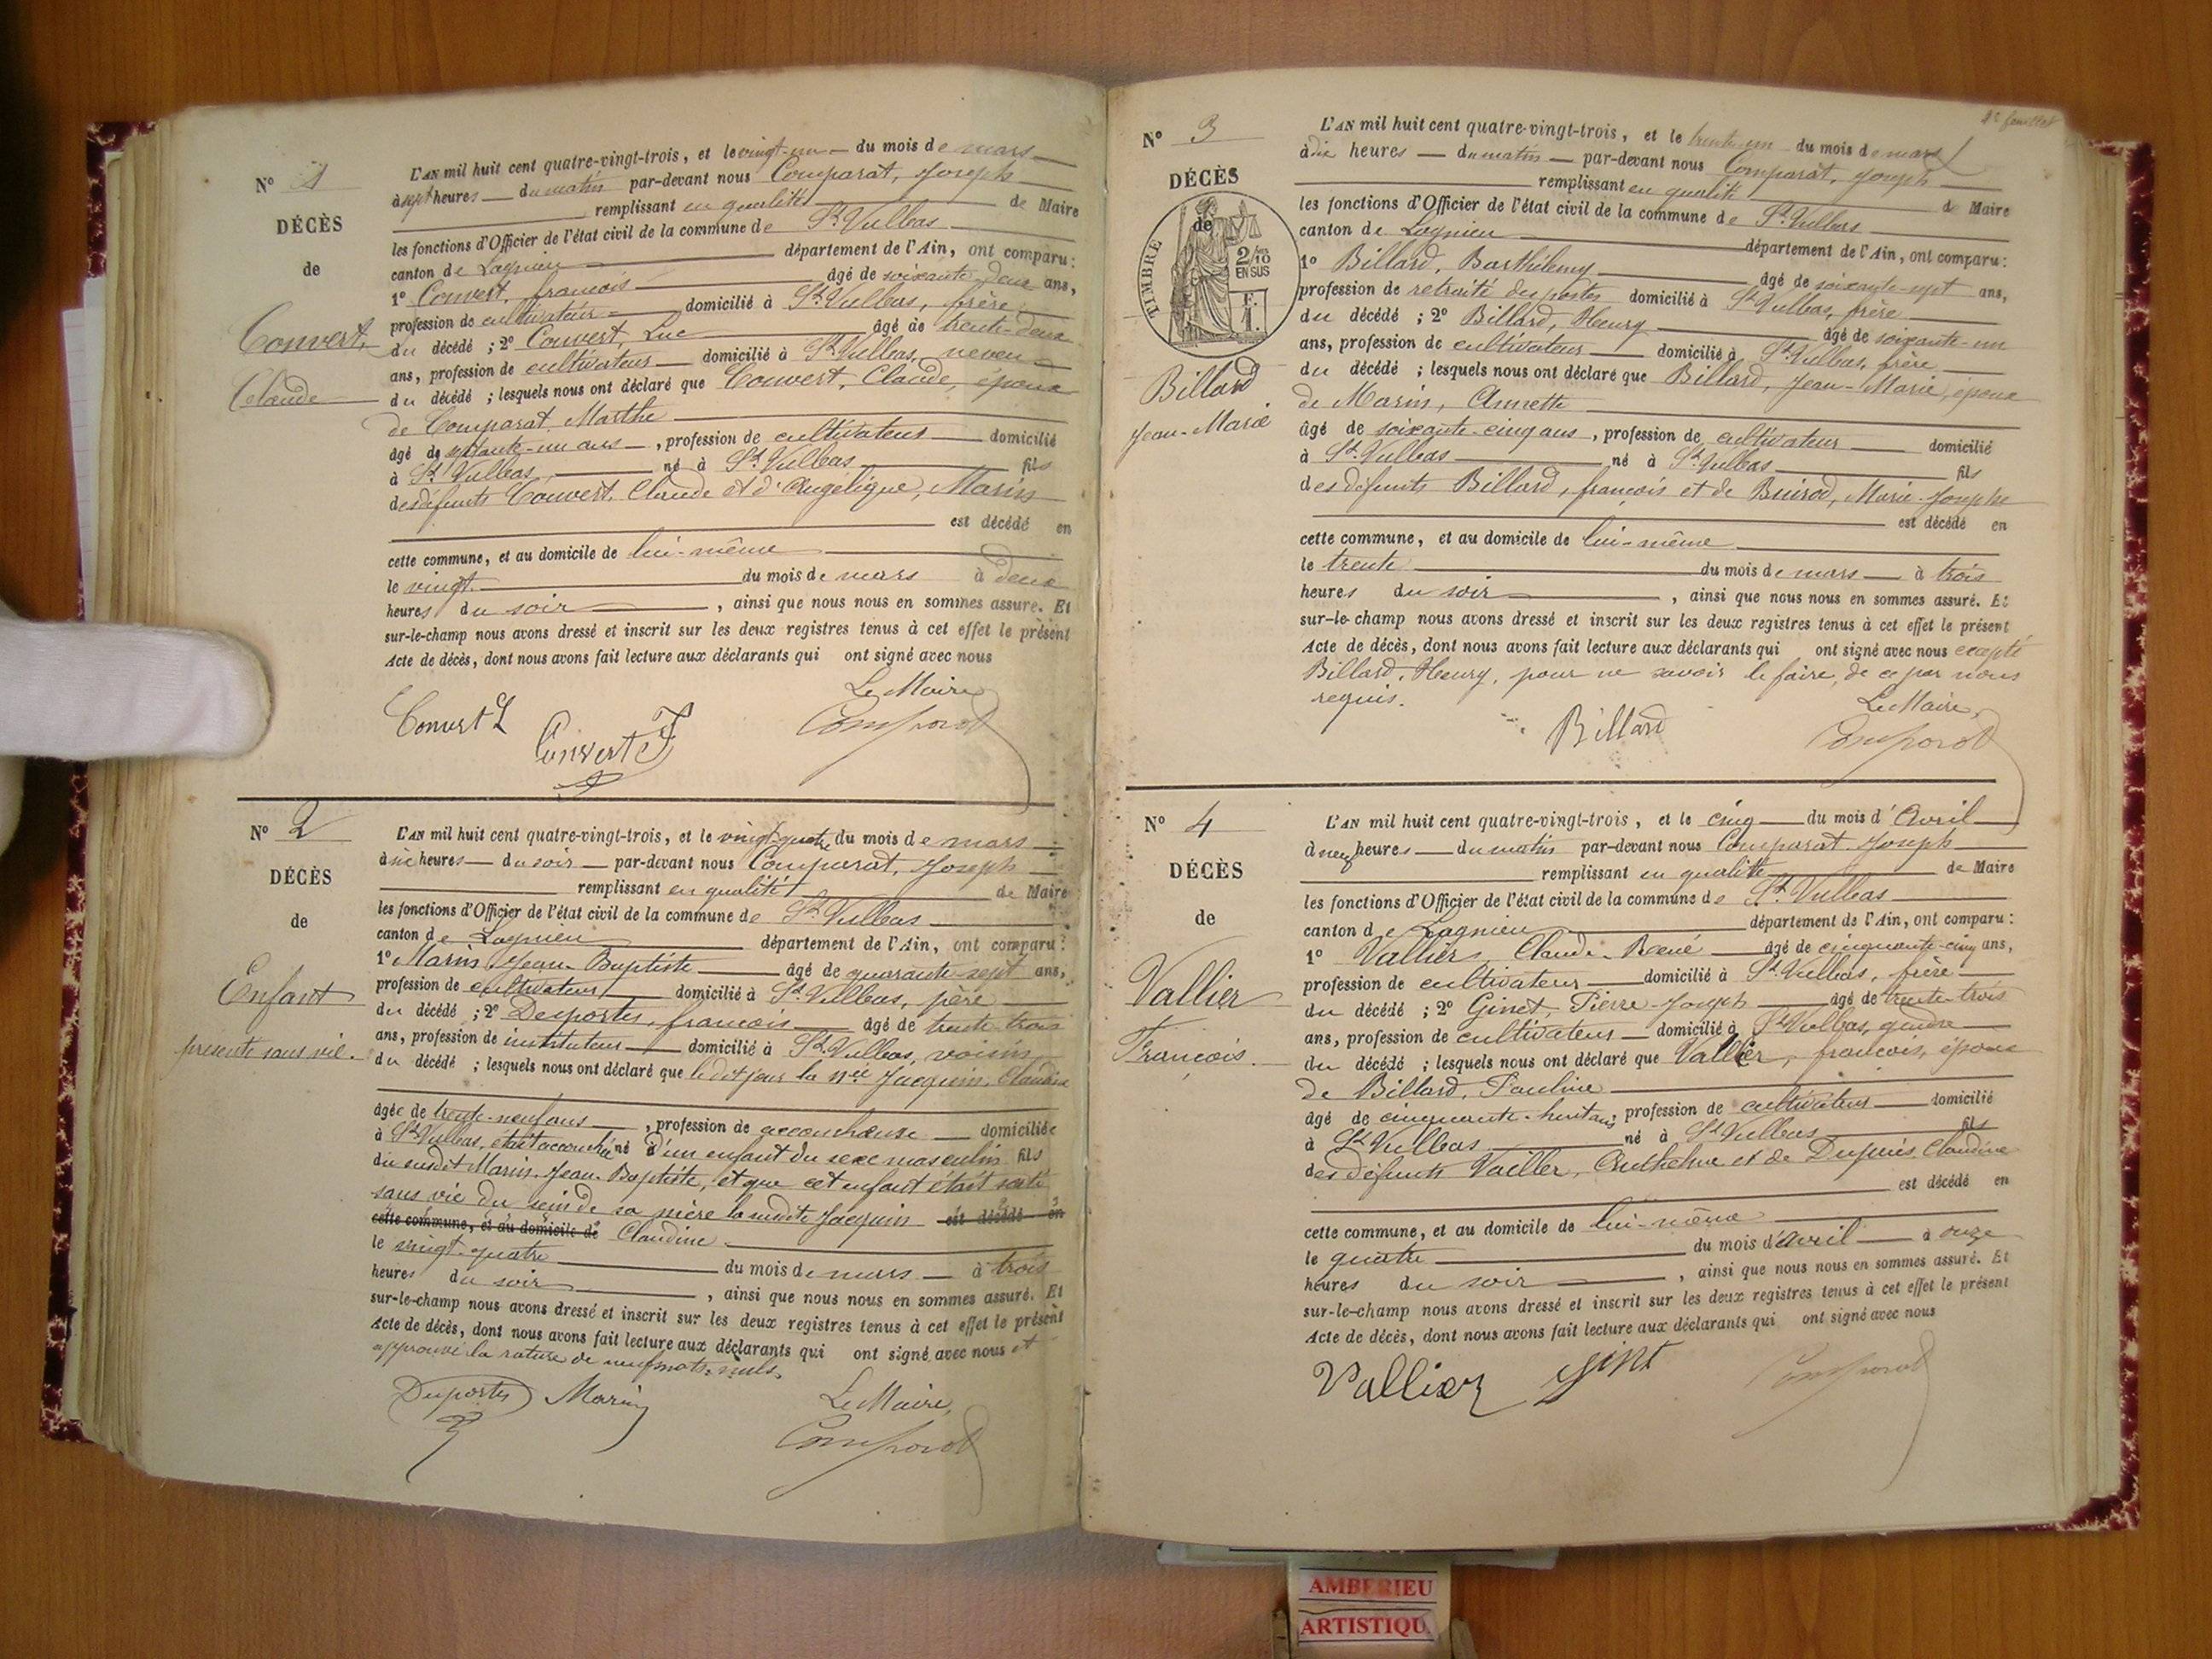 N° 1
DÉCÈS
de
Convert,
Claude
L'AN mil huit cent quatre-vingt-trois, et le vingt-un du mois de mars
à sept heures du matin par-devant nous Comparat, Joseph
remplissant en qualité de Maire
les fonctions d'Officier de l'état civil de la commune de St Vulbas
canton de Lagnieu département de l'Ain, ont comparu:
1° Convert, francois âgé de soixante deux ans,
profession de cultivateur domicilié à St Vulbas, frère
du décédé ; 2° Convert, Luc âgé de trente-deux
ans, profession de cultivateur domicilié à St Vulbas, neveu
du décédé ; lesquels nous ont déclaré que Convert, Claude, époux
de Comparat, Marthe
âgé de septante-un ans, profession de cultivateur domicilié
à St Vulbas, né à St Vulbas fils
des défunts Convert, Claude et d'Angelique, Marin
est décédé en
cette commune, et au domicile de lui-même
le vingt du mois de mars à deux
heures du soir, ainsi que nous nous en sommes assuré. Et
sur-le-champ nous avons dressé et inscrit sur les deux registres tenus à cet effet le présent
Acte de décès, dont nous avons fait lecture aux déclarants qui ont signé avec nous
Le Maire
Convert L Convert F Comparat
N° 2
DÉCÈS
de
Enfant
présenté sans vie.
L'AN mil huit cent quatre-vingt-trois, et le vingt-quatre du mois de mars
à six heures du soir par-devant nous Comparat, Joseph
remplissant en qualité de Maire
les fonctions d'Officier de l'état civil de la commune de St Vulbas
canton de Lagnieu département de l'Ain, ont comparu:
1° Marin, Jean-Baptiste âgé de quarante-sept ans,
profession de cultivateur domicilié à St Vulbas, père
du décédé ; 2° Desportes, francois âgé de trente-trois
ans, profession de instituteur domicilié à St Vulbas, voisin
du décédé ; lesquels nous ont déclaré que le dit jour la née Jacquin, Claudine
âgée de trente-neuf ans, profession de accoucheuse domiciliée
à St Vulbas, était accouchée né d'un enfant du sexe masculin fils
du susdit Marin, Jean-Baptiste, et que cet enfant était sorti
sans vie du sein de sa mère la susdite Jacquin est décédé en
cette commune, et au domicile de Claudine
le vingt-quatre du mois de mars à trois
heures du soir, ainsi que nous nous en sommes assuré. Et
sur-le-champ nous avons dressé et inscrit sur les deux registres tenus à cet effet le présent
Acte de décès, dont nous avons fait lecture aux déclarants qui ont signé avec nous et
approuvé la rature de neuf mots nuls.
Desportes Marin Le Maire,
Comparat
1er feuillet
N° 3
DÉCÈS
de
TIMBRE
2/10
EN SUS
F.
1.
Billard
Jean-Marie
L'AN mil huit cent quatre-vingt-trois, et le trente-un du mois de mars
à dix heures du matin par-devant nous Comparat, Joseph
remplissant en qualité de Maire
les fonctions d'Officier de l'état civil de la commune de St Vulbas
canton de Lagnieu département de l'Ain, ont comparu:
1° Billard, Barthélemy âgé de soixante-sept ans,
profession de retraité des postes domicilié à St Vulbas, frère
du décédé ; 2° Billard, Heury âgé de soixante-un
ans, profession de cultivateur domicilié à St Vulbas, frère
du décédé ; lesquels nous ont déclaré que Billard, Jean-Marie, époux
de Marin, Annette
âgé de soixante-cinq ans, profession de cultivateur domicilié
à St Vulbas né à St Vulbas fils
des défunts Billard, francois et de Marie-Josephe
est décédé en
cette commune, et au domicile de lui-même
le trente du mois de mars à trois
heures du soir, ainsi que nous nous en sommes assuré. Et
sur-le-champ nous avons dressé et inscrit sur les deux registres tenus à cet effet le présent
Acte de décès, dont nous avons fait lecture aux déclarants qui ont signé avec nous excepté
Billard, Heury, pour ne savoir le faire, de ce par nous
requis.
Le Maire,
Billard Comparat
N° 4
DÉCÈS
de
Vallier
François.
L'AN mil huit cent quatre-vingt-trois, et le cinq du mois d'Avril
à neuf heures du matin par-devant nous Comparat, Joseph
remplissant en qualité de Maire
les fonctions d'Officier de l'état civil de la commune de St Vulbas
canton de Lagnieu département de l'Ain, ont comparu:
1° Vallier, Claude-René âgé de cinquante-cinq ans,
profession de cultivateur domicilié à St Vulbas, frère
du décédé ; 2° Ginet, Pierre-Joseph âgé de trente-trois
ans, profession de cultivateur domicilié à St Vulbas, gendre
du décédé ; lesquels nous ont déclaré que Vallier, francois, époux
de Billard, Pauline
âgé de cinquante-huit ans, profession de cultivateur domicilié
à St Vulbas né à St Vulbas fils
des défunts Vallier, Anthelme et de Dupuis, Claudine
est décédé en
cette commune, et au domicile de lui-même
le quatre du mois d'Avril à onze
heures du soir, ainsi que nous nous en sommes assuré. Et
sur-le-champ nous avons dressé et inscrit sur les deux registres tenus à cet effet le présent
Acte de décès, dont nous avons fait lecture aux déclarants qui ont signé avec nous
Vallier Comparat
AMBERIEU
ARTISTIQU